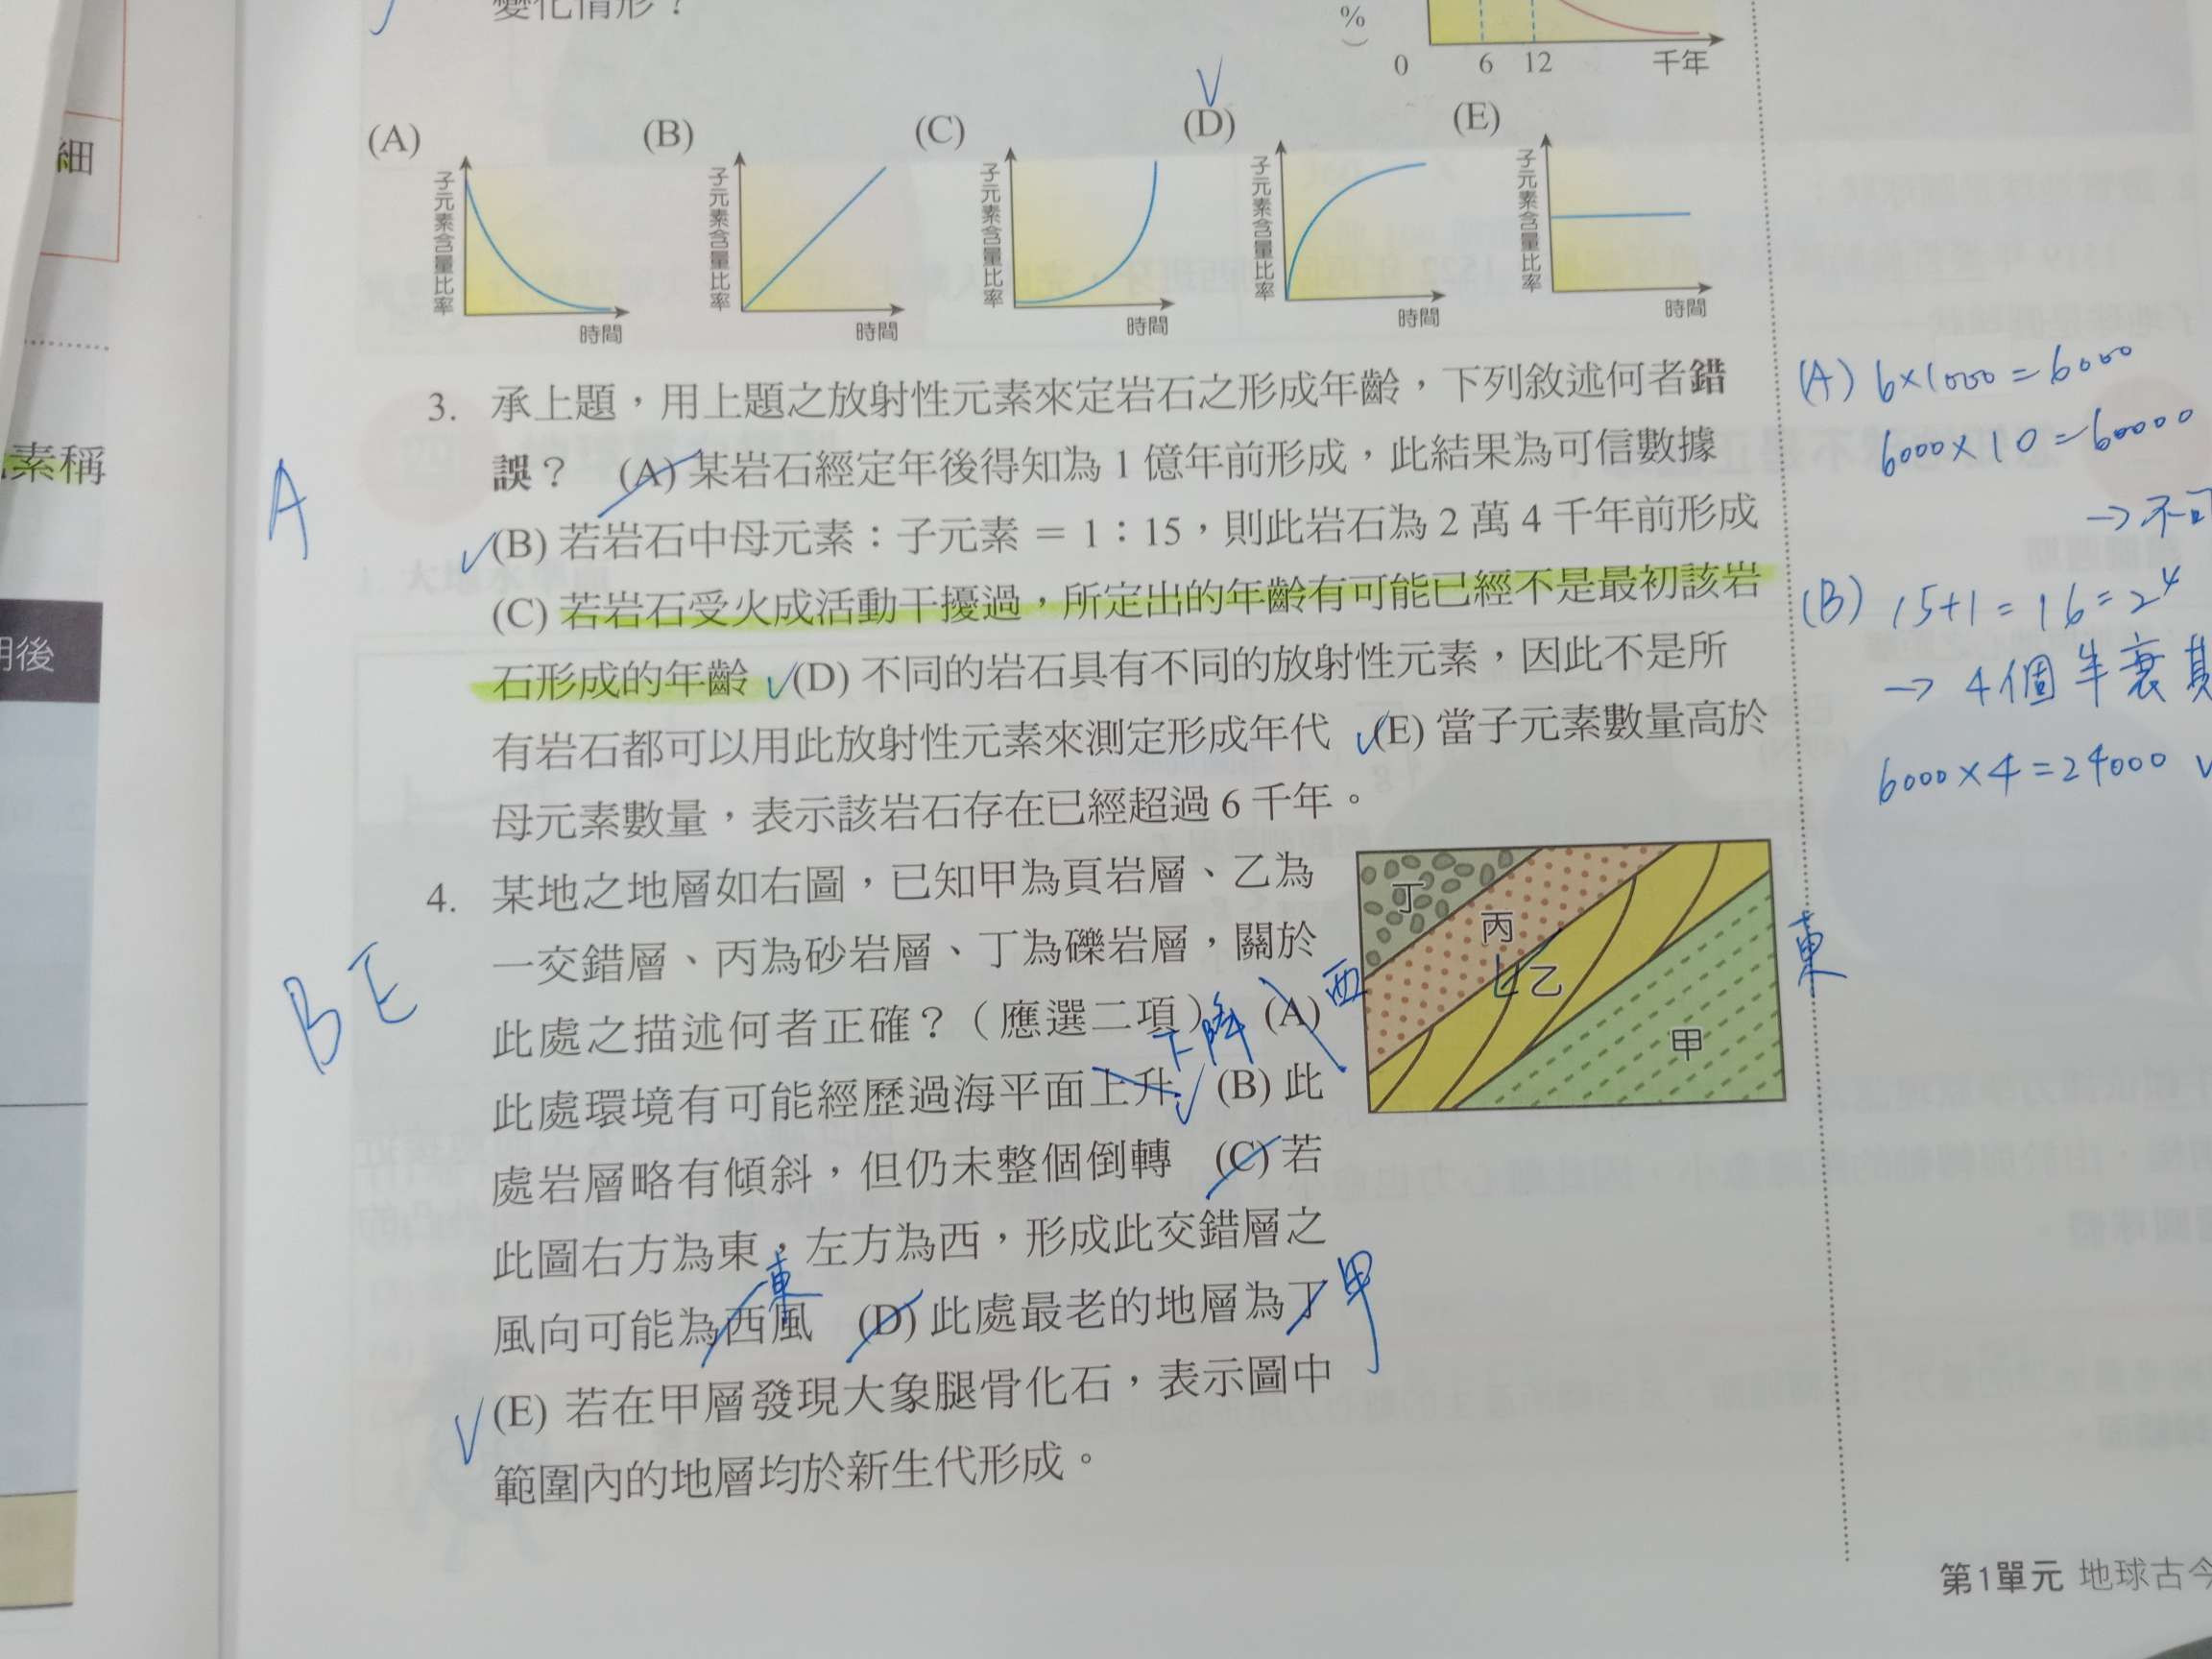 變化情形？
%
0 6 12 千年
(A) (B) (C) (D) (E)
子元素含量比率 時間
子元素含量比率 時間
子元素含量比率 時間
子元素含量比率 時間
子元素含量比率 時間
3. 承上題，用上題之放射性元素來定岩石之形成年齡，下列敘述何者錯
誤？ (A) 某岩石經定年後得知為 1 億年前形成，此結果為可信數據
(B) 若岩石中母元素：子元素 = 1：15，則此岩石為 2 萬 4 千年前形成
(C) 若岩石受火成活動干擾過，所定出的年齡有可能已經不是最初該岩
石形成的年齡 (D) 不同的岩石具有不同的放射性元素，因此不是所
有岩石都可以用此放射性元素來測定形成年代 (E) 當子元素數量高於
母元素數量，表示該岩石存在已經超過 6 千年。
A
(A) 6×1000=6000
6000×10=60000
→不
(B) 15+1=16=2⁴
→4個半衰
6000×4=24000
4. 某地之地層如右圖，已知甲為頁岩層、乙為
一交錯層、丙為砂岩層、丁為礫岩層，關於
此處之描述何者正確？（應選二項） (A)
此處環境有可能經歷過海平面上升 (B) 此
處岩層略有傾斜，但仍未整個倒轉 (C) 若
此圖右方為東，左方為西，形成此交錯層之
風向可能為西風 (D) 此處最老的地層為丁
(E) 若在甲層發現大象腿骨化石，表示圖中
範圍內的地層均於新生代形成。
BE
下降
東
甲
西
東
丁
丙
乙
甲
細
素稱
期後
第1單元 地球古今